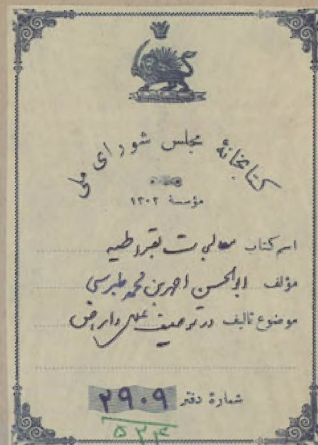 کتابخانهٔ مجلس شورای ملی
مؤسسهٔ ۱۳۰۲
اسم کتاب معالجات بقراطیه
مؤلف ابوالحسن احمد بن محمد طبرسی
موضوع تالیف در توصیف علل و امراض
شمارهٔ دفتر ۲۹۰۹
۵۲۴